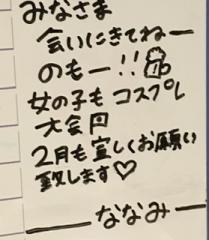 みなさま
会いにきてねー
のもー!!
女の子も コスプレ
大会円
2月も宜しくお願い
致します♡
ななみ